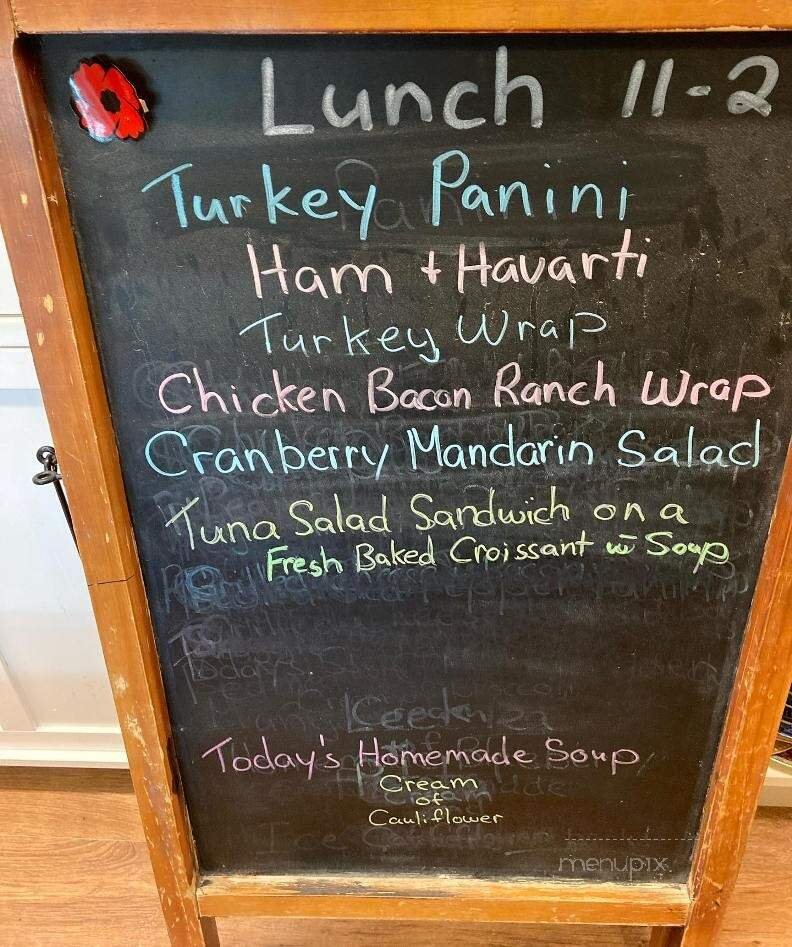 Lunch 11-2
Turkey Panini
Ham + Havarti
Turkey Wrap
Chicken Bacon Ranch Wrap
Cranberry Mandarin Salad
Tuna Salad Sandwich on a
Fresh Baked Croissant w Soup
Today's Homemade Soup
Cream
of
Cauliflower
menupix